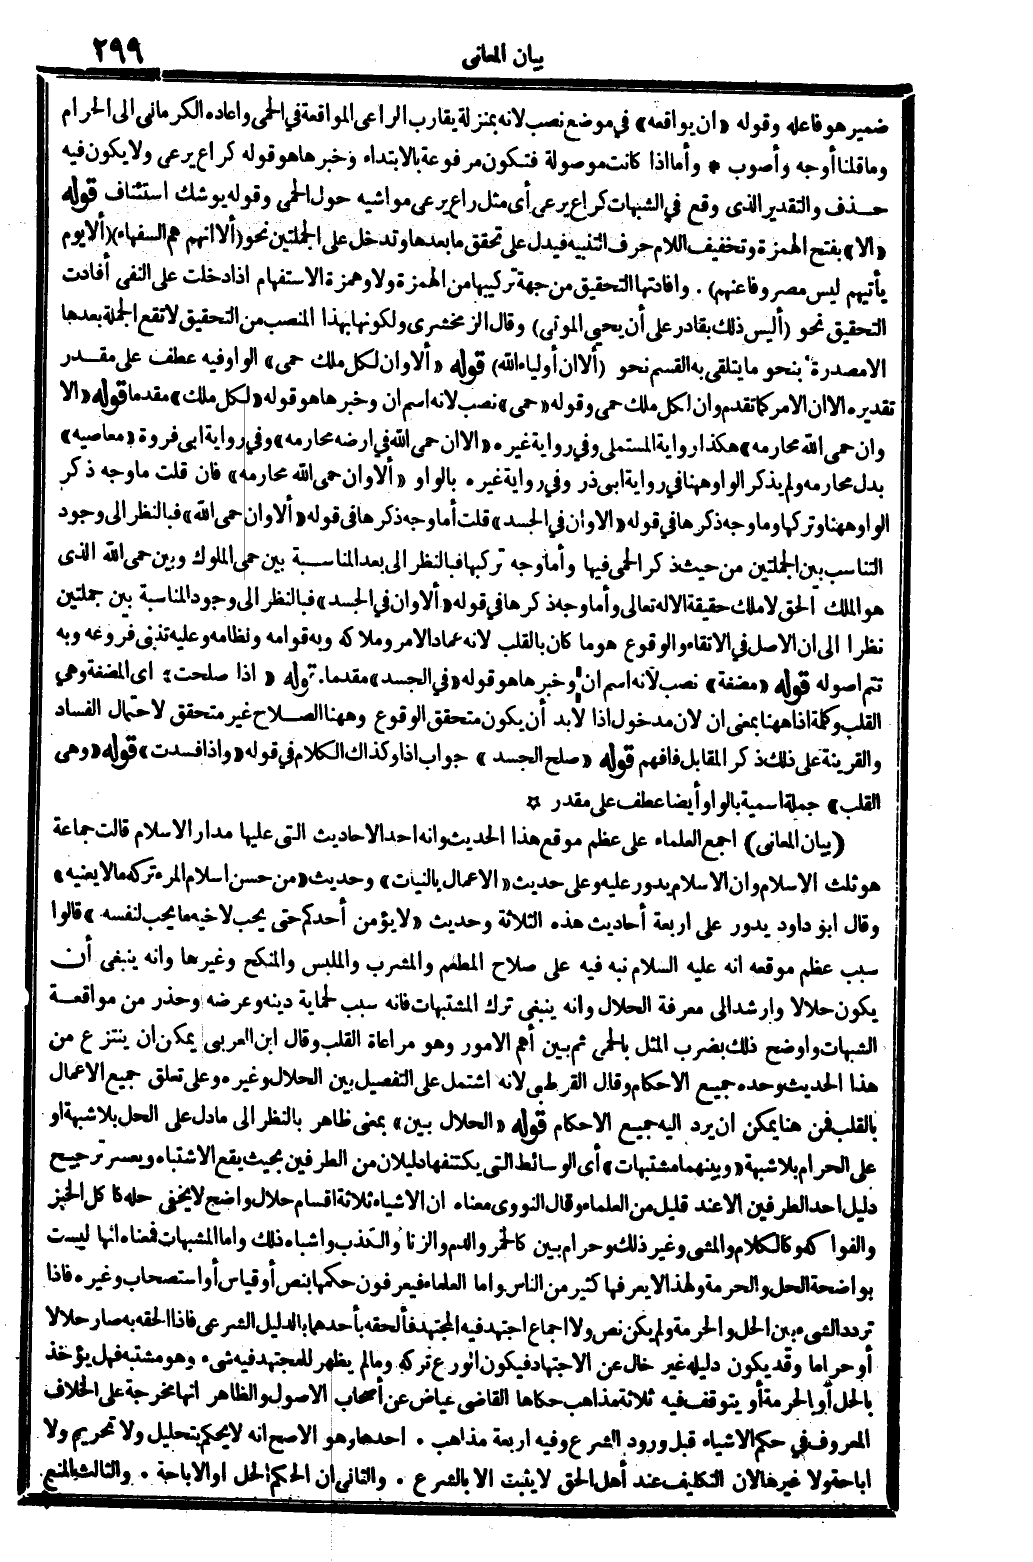 ٢٩٩
بيان المعانى
ضمير هو فاعله وقوله «ان يواقعه» في موضع نصب لانه بمنزلة يقارب الراعى المواقعة في الحمى واعاده الكرمانى الى الحرام
وما قلنا أوجه وأصوب * وأما اذا كانت موصولة فتكون مرفوعة بالابتداء وخبرها هو قوله كراع يرعى ولا يكون فيه
حذف والتقدير الذى وقع في الشبهات كراع يرعى أى مثل راع يرعى مواشيه حول الحمى وقوله يوشك استئناف قوله
«الا» بفتح الهمزة وتخفيف اللام حرف التنبيه فيدل على تحقق ما بعدها وتدخل على الجملتين نحو (ألا انهم هم السفهاء) (ألا يوم
يأتيهم ليس مصروفا عنهم) . وافادتها التحقيق من جهة تركيبها من الهمزة ولا وهمزة الاستفهام اذا دخلت على النفى أفادت
التحقيق نحو (أليس ذلك بقادر على أن يحيى الموتى) وقال الزمخشرى ولكونها بهذا المنصب من التحقيق لا تقع الجملة بعدها
الا مصدرة بنحو ما يتلقى به القسم نحو (ألا ان أولياء الله) قوله «ألا وان لكل ملك حمى» الواو فيه عطف على مقدر
تقديره الا ان الامر كما تقدم وان لكل ملك حمى وقوله «حمى» نصب لانه اسم ان وخبرها هو قوله «لكل ملك» مقدما قوله «الا
وان حمى الله محارمه» هكذا رواية المستملى وفي رواية غيره «الا ان حمى الله في ارضه محارمه» وفي رواية ابى فروة «معاصيه»
بدل محارمه ولم يذكر الواو ههنا في رواية ابى ذر وفي رواية غيره بالواو «ألا وان حمى الله محارمه» فان قلت ما وجه ذكر
الواو ههنا وتركها وما وجه ذكرها في قوله «الا وان في الجسد» قلت أما وجه ذكرها في قوله «ألا وان حمى الله» فبالنظر الى وجود
التناسب بين الجملتين من حيث ذكر الحمى فيها وأما وجه تركها فبالنظر الى بعد المناسبة بين حمى الملوك وبين حمى الله الذى
هو الملك الحق لا ملك حقيقة الا له تعالى وأما وجه ذكرها في قوله «ألا وان في الجسد» فبالنظر الى وجود المناسبة بين جملتين
نظرا الى ان الاصل في الاتقاء والوقوع هو ما كان بالقلب لانه عماد الامر وملاكه وبه قوامه ونظامه وعليه تبنى فروعه وبه
تتم اصوله قوله «مضغة» نصب لانه اسم ان وخبرها هو قوله «في الجسد» مقدما. قوله «اذا صلحت» اى المضغة وهي
القلب وكلمة اذا ههنا بمعنى ان لان مدخول اذا لا بد أن يكون متحقق الوقوع وههنا الصلاح غير متحقق لاحتمال الفساد
والقرينة على ذلك ذكر المقابل فافهم قوله «صلح الجسد» جواب اذا وكذاك الكلام في قوله «واذا فسدت» قوله «وهى
القلب» جملة اسمية بالواو أيضا عطف على مقدر ☆
(بيان المعانى) اجمع العلماء على عظم موقع هذا الحديث وانه احد الاحاديث التى عليها مدار الاسلام قالت جماعة
هو ثلث الاسلام وان الاسلام يدور عليه وعلى حديث «الاعمال بالنيات» وحديث «من حسن اسلام المرء تركه ما لا يعنيه»
وقال ابو داود يدور على اربعة أحاديث هذه الثلاثة وحديث «لا يؤمن أحدكم حتى يحب لاخيه ما يحب لنفسه» قالوا
سبب عظم موقعه انه عليه السلام نبه فيه على صلاح المطعم والمشرب والملبس والمنكح وغيرها وانه ينبغى أن
يكون حلالا وارشد الى معرفة الحلال وانه ينبغى ترك المشتبهات فانه سبب لحماية دينه وعرضه وحذر من مواقعة
الشبهات واوضح ذلك بضرب المثل بالحمى ثم بين أهم الامور وهو مراعاة القلب وقال ابن العربى يمكن ان ينتزع من
هذا الحديث وحده جميع الاحكام وقال القرطبى لانه اشتمل على التفصيل بين الحلال وغيره وعلى تعلق جميع الاعمال
بالقلب فمن هنا يمكن ان يرد اليه جميع الاحكام قوله «الحلال بين» بمعنى ظاهر بالنظر الى ما دل على الحل بلا شبهة او
على الحرام بلا شبهة «وبينهما مشتبهات» أى الوسائط التى يكتنفها دليلان من الطرفين بحيث يقع الاشتباه ويعسر ترجيح
دليل احد الطرفين الا عند قليل من العلماء وقال النووى معناه ان الاشياء ثلاثة اقسام حلال واضح لا يخفى حله كاكل الخبز
والفواكه وكالكلام والمشى وغير ذلك وحرام بين كالخمر والدم والزنا والكذب واشباه ذلك واما المشبهات فمعناه انها ليست
بواضحة الحل والحرمة ولهذا لا يعرفها كثير من الناس واما العلماء فيعرفون حكمها بنص أو قياس أو استصحاب وغيره فاذا
تردد الشىء بين الحل والحرمة ولم يكن نص ولا اجماع اجتهد فيه المجتهد فألحقه بأحدهما بالدليل الشرعى فاذا الحقه به صار حلالا
أو حراما وقد يكون دليله غير خال عن الاجتهاد فيكون الورع تركه وما لم يظهر للمجتهد فيه شىء وهو مشتبه فهل يؤخذ
بالحل أو بالحرمة أو يتوقف فيه ثلاثة مذاهب حكاها القاضى عياض عن أصحاب الاصول والظاهر انها مخرجة على الخلاف
المعروف في حكم الاشياء قبل ورود الشرع وفيه اربعة مذاهب . احدها وهو الاصح انه لا يحكم بتحليل ولا تحريم ولا
اباحة ولا غيرها لان التكليف عند أهل الحق لا يثبت الا بالشرع . والثانى ان الحكم الحل او الاباحة . والثالث المنع